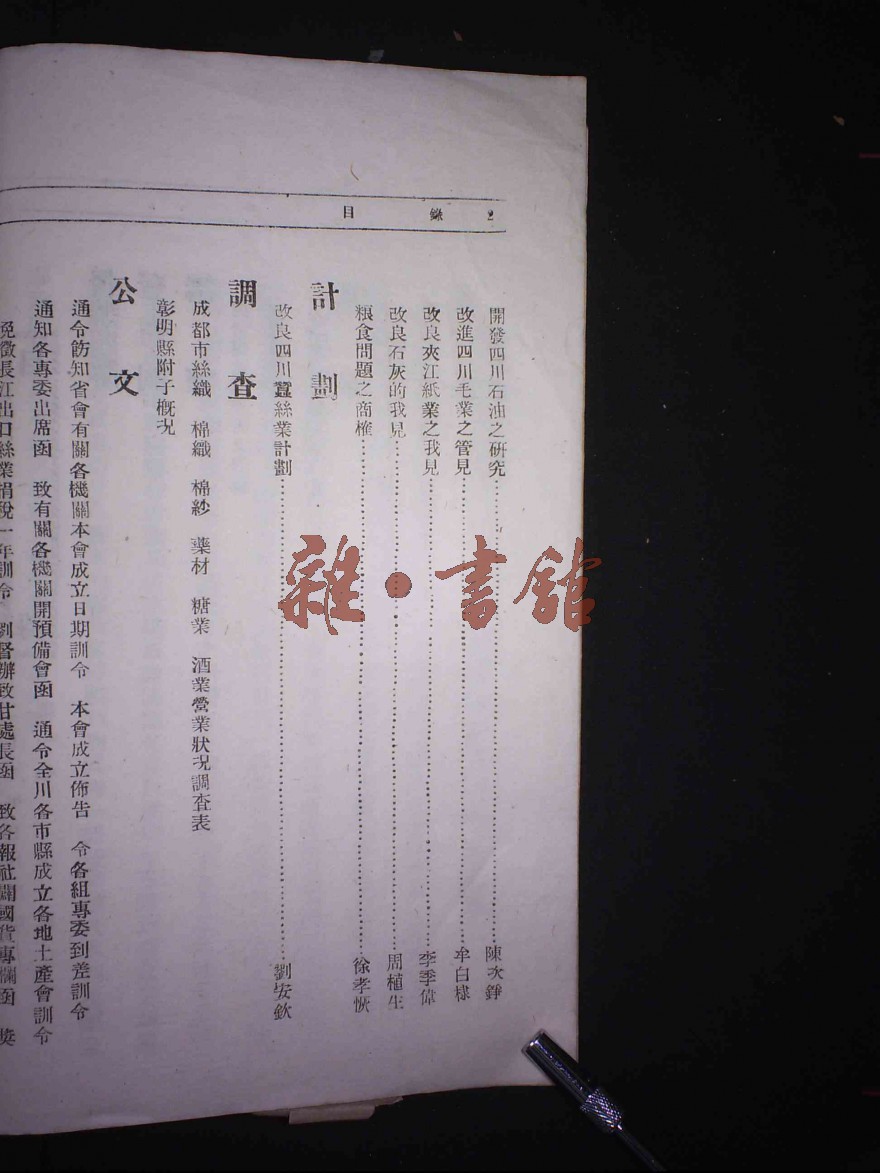 目錄 2
開發四川石油之研究 陳次錚
改進四川毛業之管見 牟白樣
改良夾江紙業之我見 李季偉
改良石灰的我見 周植生
粮食問題之商榷 徐孝恢
計劃
改良四川蠶絲業計劃 劉安欽
調查
成都市絲織 棉織 棉紗 藥材 糖業 酒業營業狀況調査表
彰明縣附子概況
公文
通令飭知省會有關各機關本會成立日期訓令 本會成立佈告 令各組專委到差訓令
通知各專委出席函 致有關各機關開預備會函 通令全川各市縣成立各地土產會訓令
免徵長江出口絲業捐稅一年訓令 劉督辦致甘處長函 致各報社闢國貨專欄函 獎
雜·書館